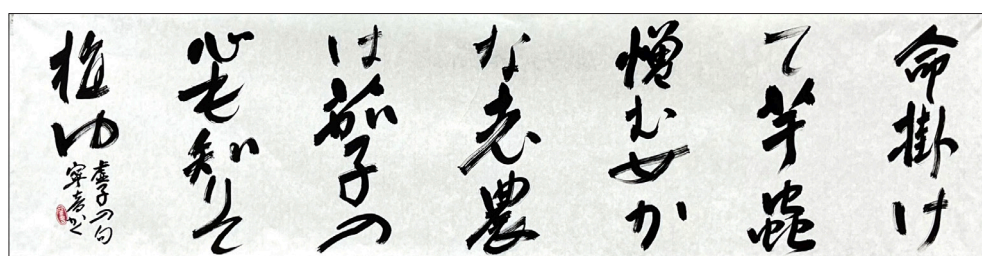 命掛け
て芋蟲
憎む女か
な老農
は茄子の
心も知りて
植ゆ
虚子の句
寧彦かく